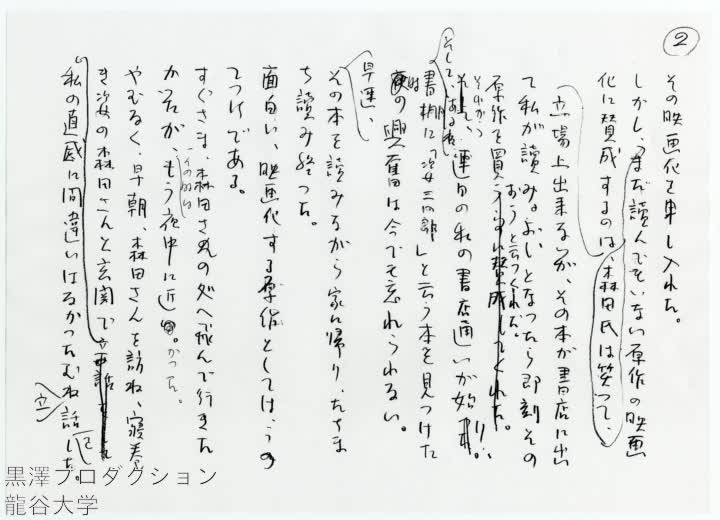 ②
その映画化を申し入れた。
しかし、「まだ読んでもいない原作の映画
化に賛成するのは、森田氏は笑って、
立場上出来ないが、その本が書店に出
て私が読みおもしろいとなったら即刻その
原作を買おうと云ってくれた。
そして、ある日
それから連日の私の書店通いが始まり、
書棚に「姿三四郎」と云う本を見つけた
時の興奮は今でも忘れられない。
早速、
その本を読みながら家に帰り、たちま
ち読み終った。
面白い、映画化する原作としては、うっ
てつけである。
すぐさま、森田さんの処へ飛んで行きた
かったが、もう夜中に近かった。
やむなく、早朝、森田さんを訪ね、寝巻
き姿の森田さんと玄関で立話
私の直感に間違いはなかったむね話した。
黒澤プロダクション
龍谷大学